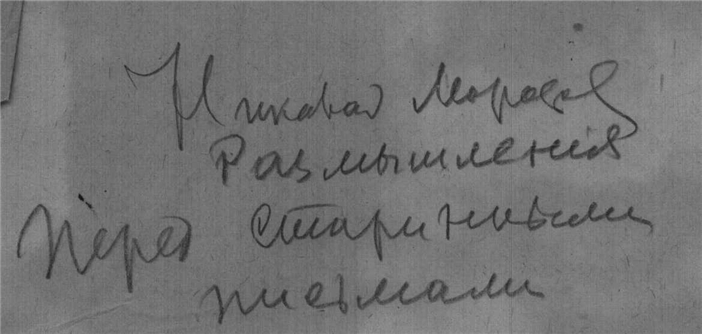 Николай Морозов
Размышления
перед старинными
письмами